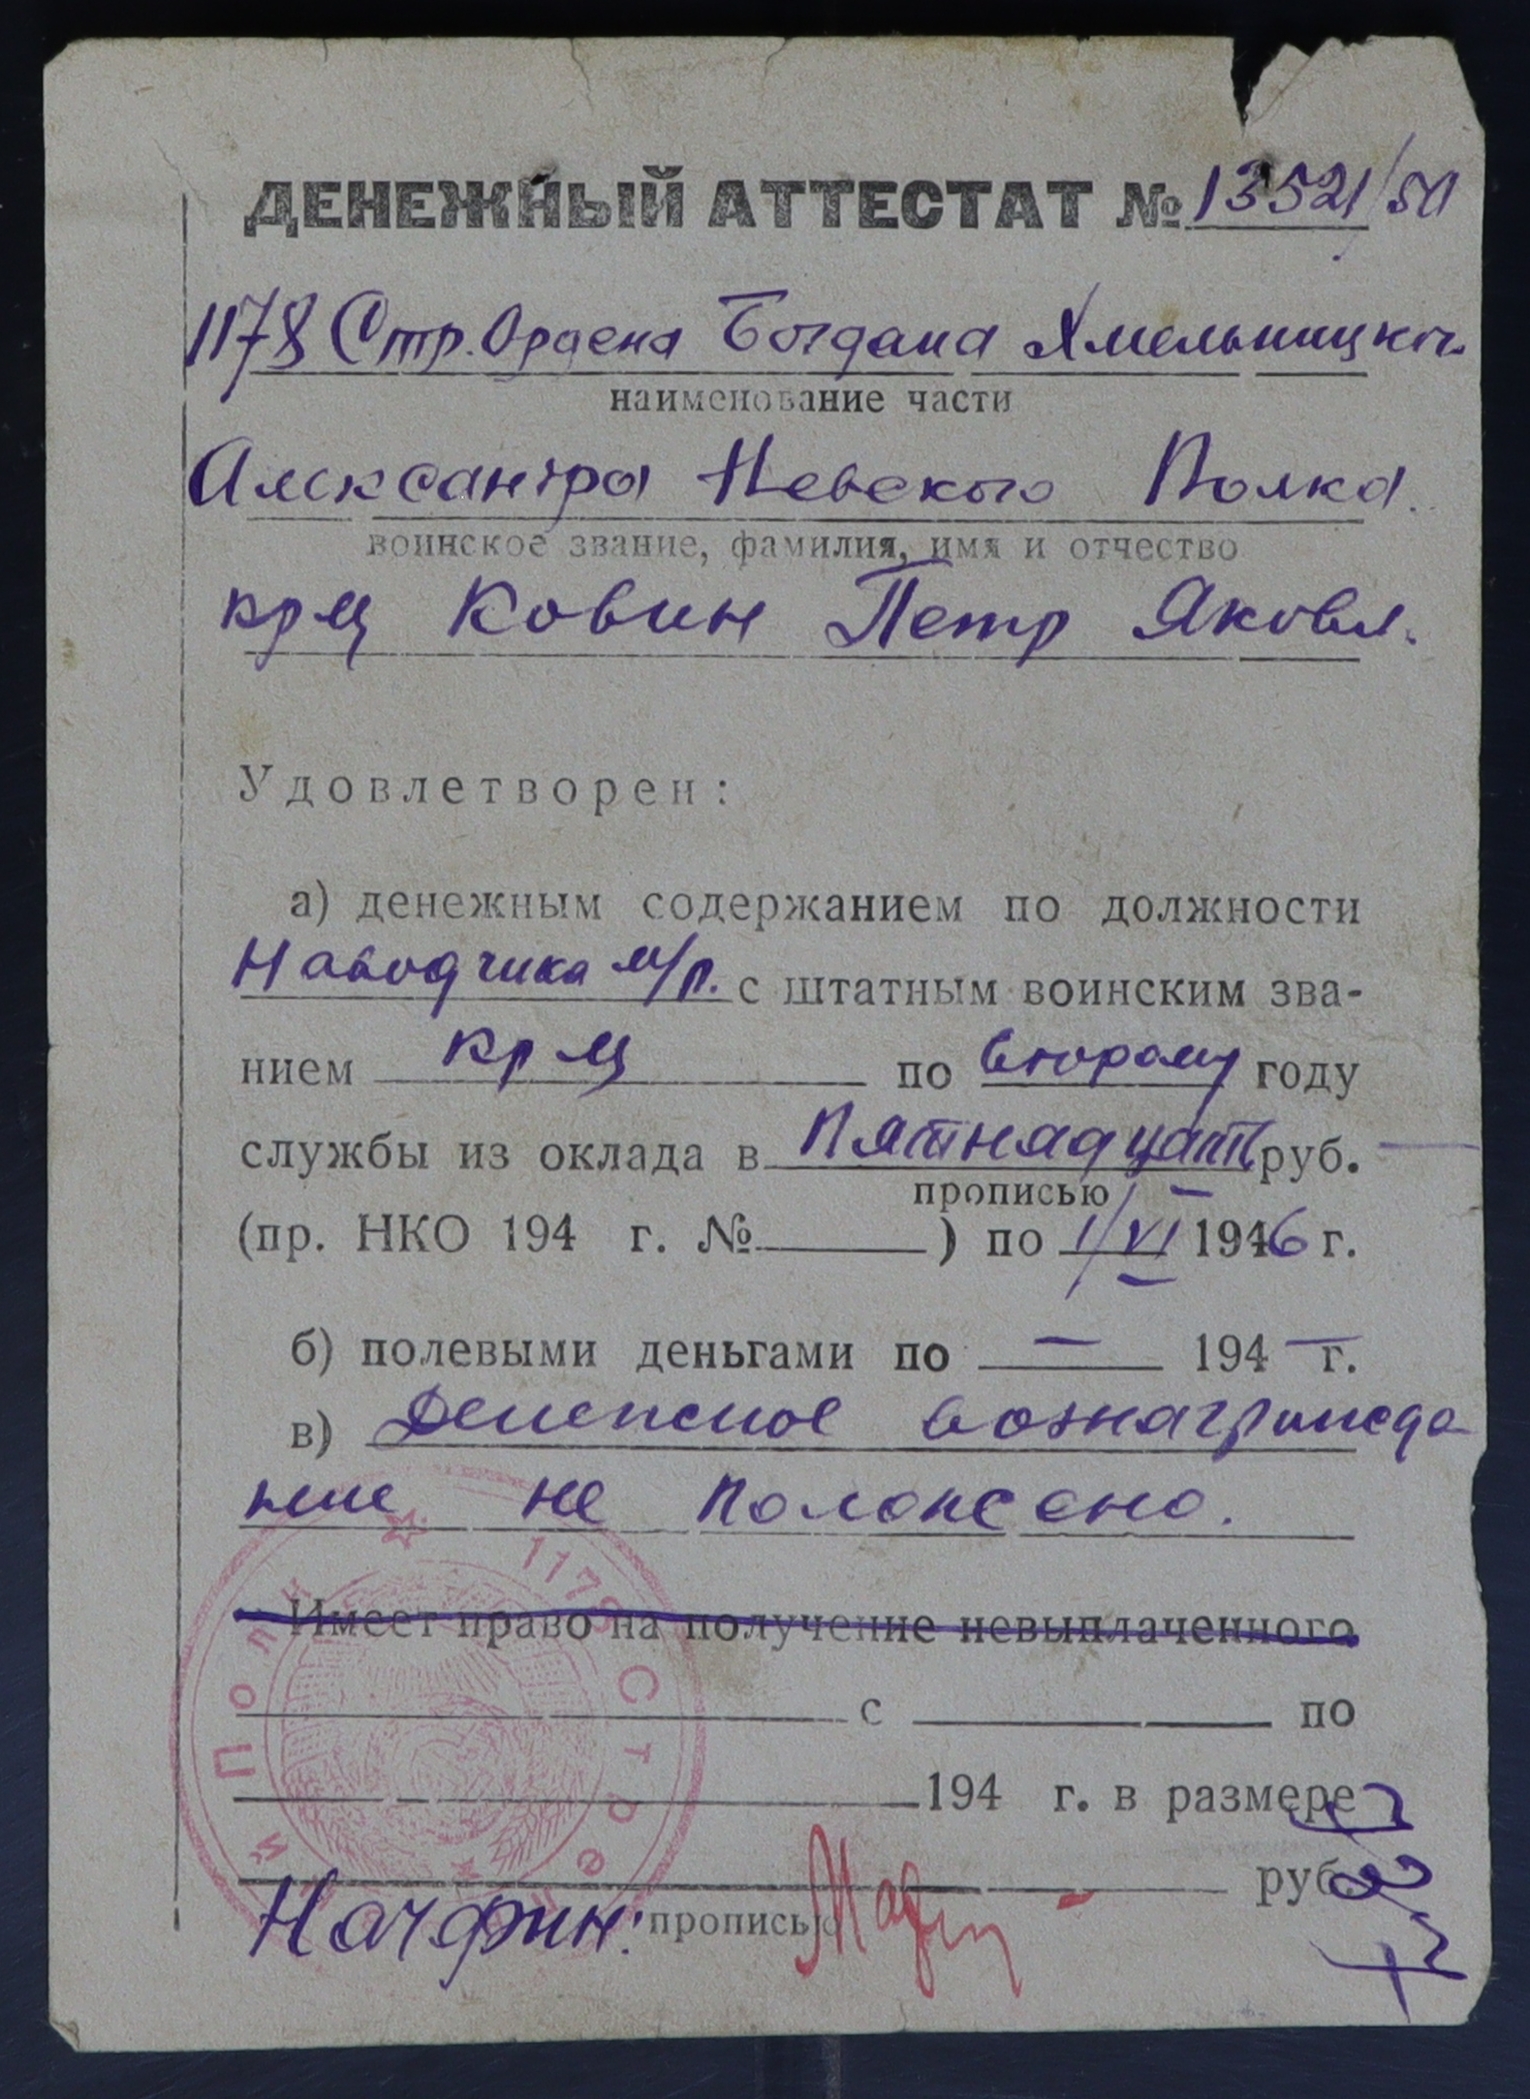 ДЕНЕЖНЫЙ АТТЕСТАТ № 13521/50
1178 Стр. Ордена Богдана Хмельницког.
наименование части
Александра Невского Полка.
воинское звание, фамилия, имя и отчество
крц Ковин Петр Яковл.
Удовлетворен:
а) денежным содержанием по должности
Наводчика м/р. с штатным воинским зва-
нием крц по второму году
службы из оклада в Пятнадцать руб.
прописью
(пр. НКО 194 г. № ) по 1/VI 1946 г.
б) полевыми деньгами по — 194 — г.
в) Денежное вознагражда
ние не положено.
Имеет право на получение невыплаченного
с по
194 г. в размере
руб.
Начфин: прописью
1178 Стре й Полк